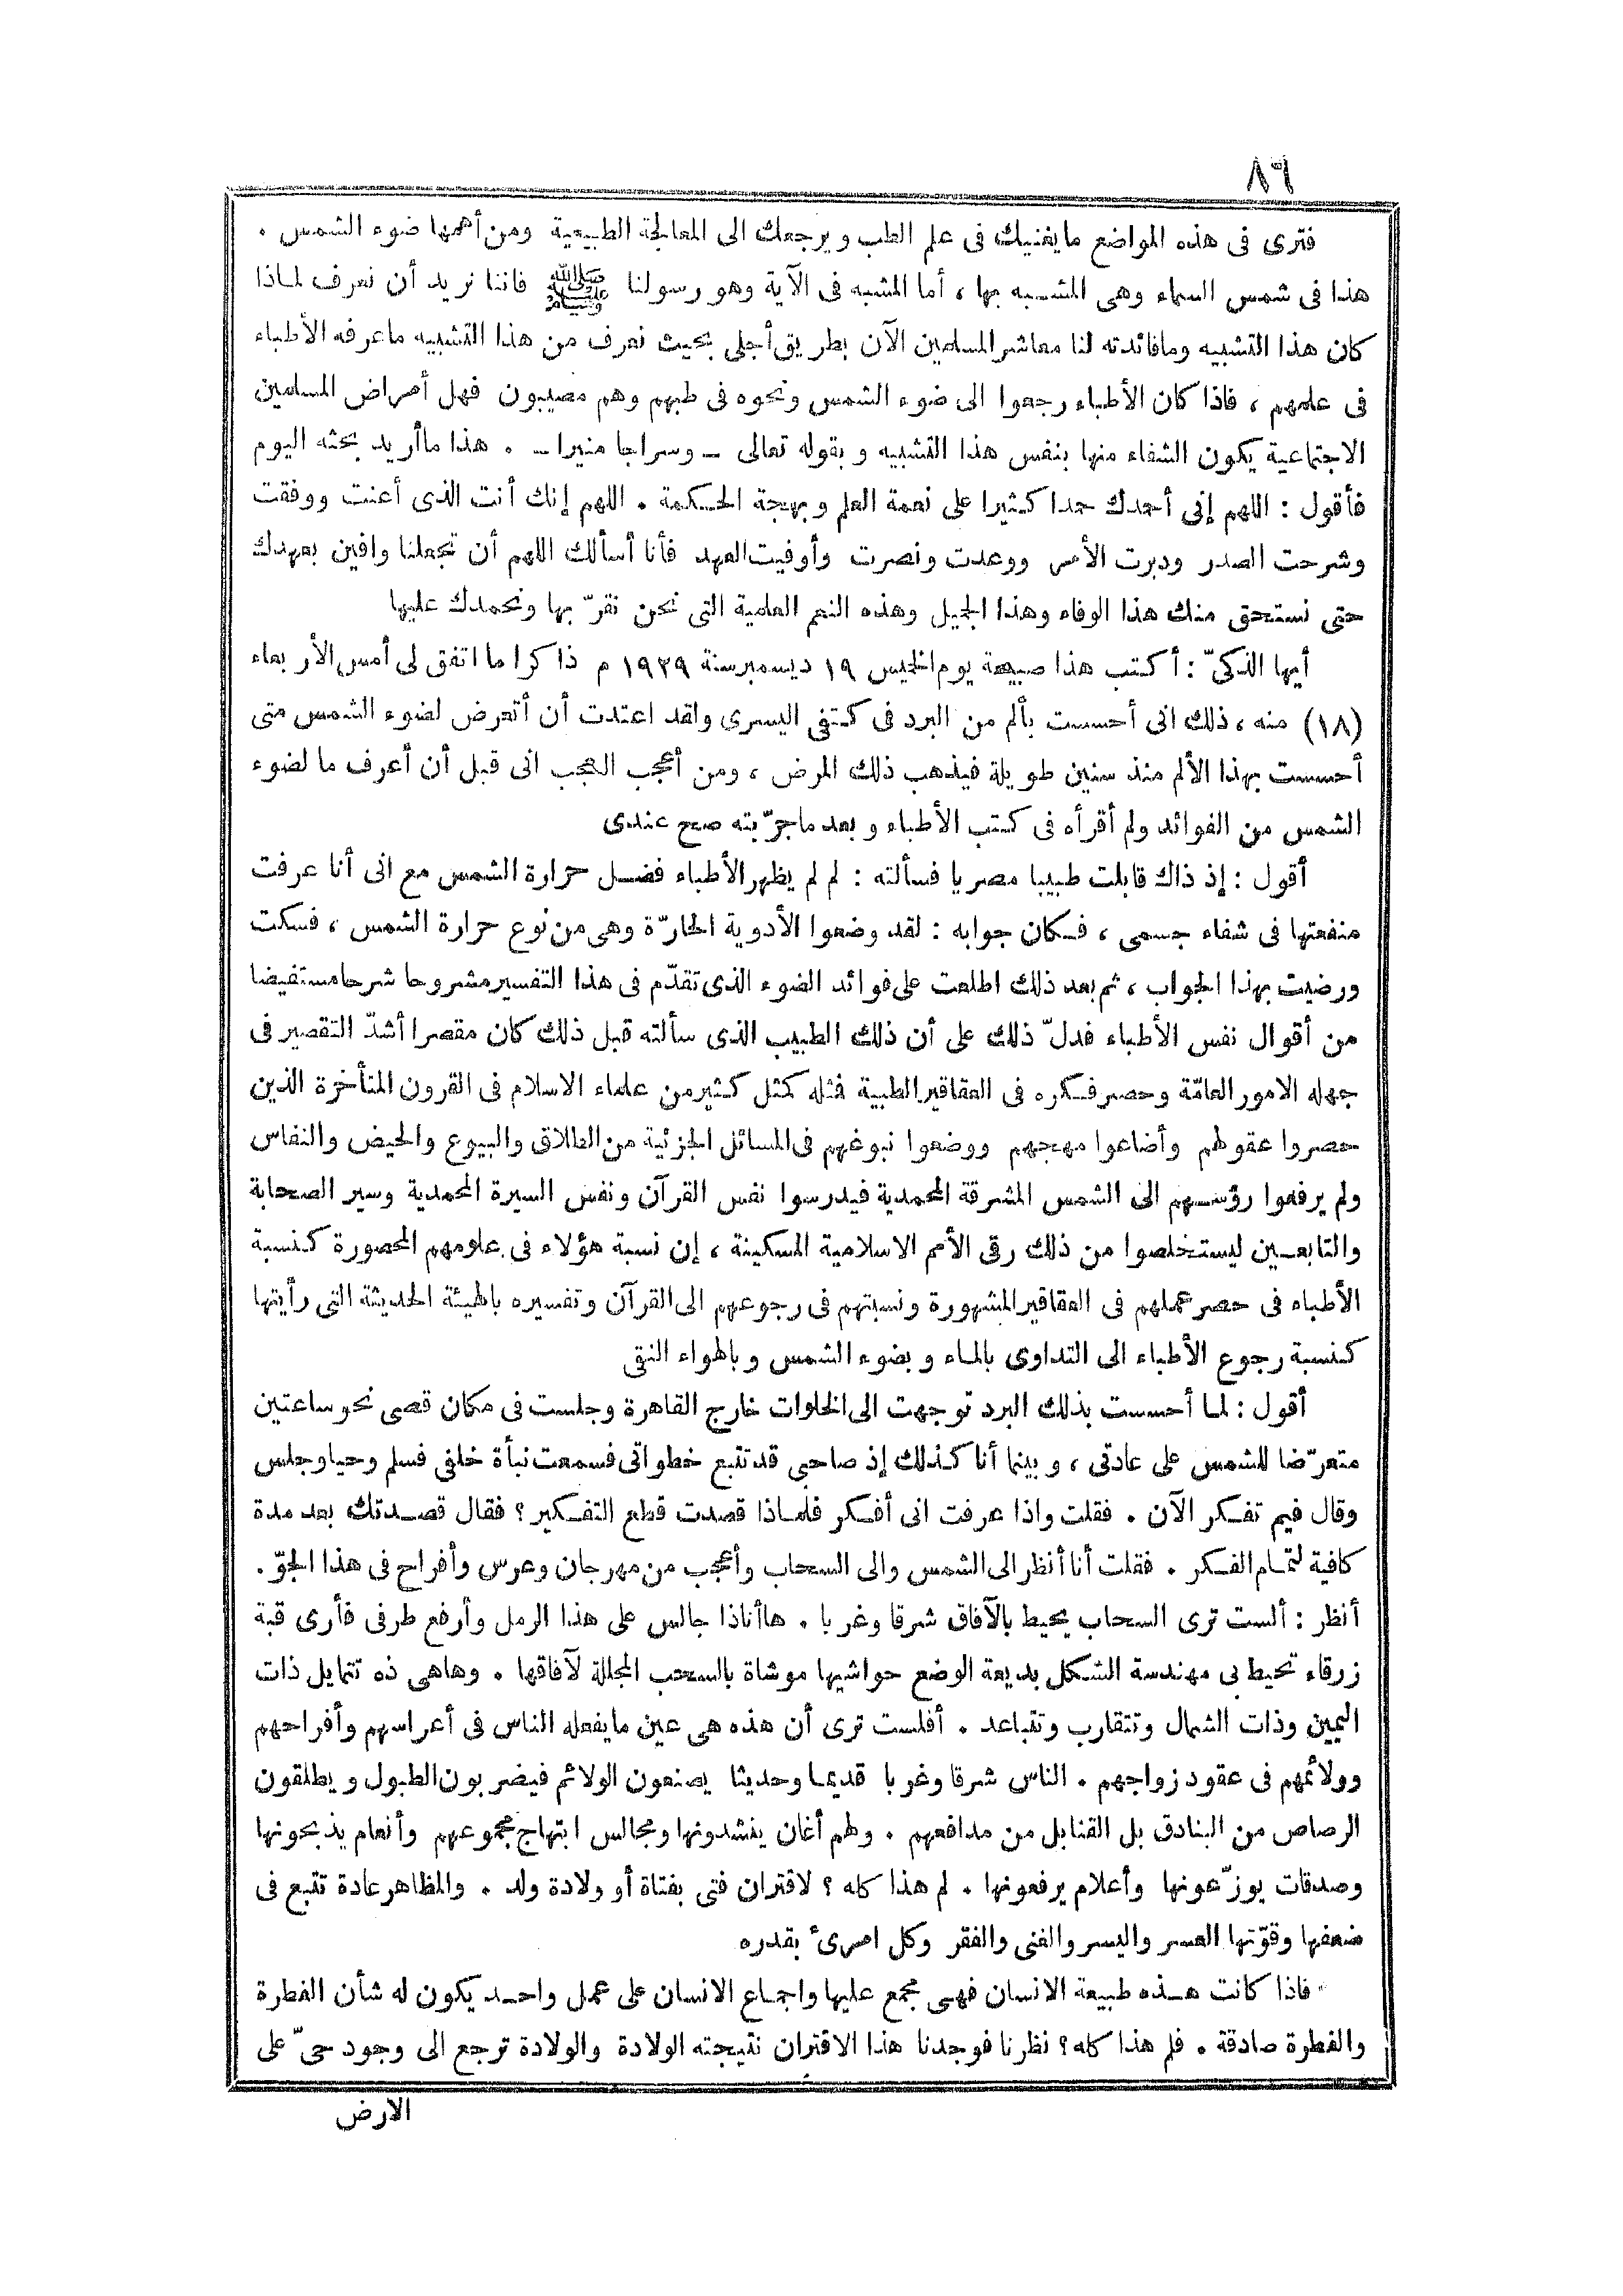 ٨٦
فترى فى هذه المواضع مايغنيك فى علم الطب ويرجعك الى المعالجة الطبيعية ومن أهمها ضوء الشمس .
هذا فى شمس السماء وهى المشبه بها ، أما المشبه فى الآية وهو رسولنا ﷺ فاننا نريد أن نعرف لماذا
كان هذا التشبيه ومافائدته لنا معاشر المسلمين الآن بطريق أجلى بحيث نعرف من هذا التشبيه ماعرفه الأطباء
فى علمهم ، فاذا كان الأطباء رجعوا الى ضوء الشمس ونحوه فى طبهم وهم مصيبون فهل أمراض المسلمين
الاجتماعية يكون الشفاء منها بنفس هذا التشبيه وبقوله تعالى ــ وسراجا منيرا ــ . هذا ماأريد بحثه اليوم
فأقول : اللهم إنى أحمدك حمدا كثيرا على نعمة العلم وبهجة الحكمة . اللهم إنك أنت الذى أعنت ووفقت
وشرحت الصدر ودبرت الأمر ووعدت ونصرت وأوفيت العهد فأنا أسألك اللهم أن تجعلنا وافين بعهدك
حتى نستحق منك هذا الوفاء وهذا الجميل وهذه النعم العلمية التى نحن نقرّ بها ونحمدك عليها
أيها الذكىّ : أكتب هذا صبيحة يوم الخميس ١٩ ديسمبر سنة ١٩٢٩ م ذاكرا ما اتفق لى أمس الأربعاء
(١٨) منه ، ذلك انى أحسست بألم من البرد فى كتفى اليسرى ولقد اعتدت أن أتعرض لضوء الشمس متى
أحسست بهذا الألم منذ سنين طويلة فيذهب ذلك المرض ، ومن أعجب العجب انى قبل أن أعرف ما لضوء
الشمس من الفوائد ولم أقرأه فى كتب الأطباء وبعد ماجرّبته صح عندى
أقول : إذ ذاك قابلت طبيبا مصريا فسألته : لم لم يظهر الأطباء فضل حرارة الشمس مع انى أنا عرفت
منفعتها فى شفاء جسمى ، فكان جوابه : لقد وضعوا الأدوية الحارّة وهى من نوع حرارة الشمس ، فسكت
ورضيت بهذا الجواب ، ثم بعد ذلك اطلعت على فوائد الضوء الذى تقدّم فى هذا التفسير مشروحا شرحا مستفيضا
من أقوال نفس الأطباء فدلّ ذلك على أن ذلك الطبيب الذى سألته قبل ذلك كان مقصرا أشدّ التقصير فى
جهله الامور العامّة وحصر فكره فى العقاقير الطبية فمثله كمثل كثير من علماء الاسلام فى القرون المتأخرة الذين
حصروا عقولهم وأضاعوا مهجهم ووضعوا نبوغهم فى المسائل الجزئية من الطلاق والبيوع والحيض والنفاس
ولم يرفعوا رؤسهم الى الشمس المشرقة المحمدية فيدرسوا نفس القرآن ونفس السيرة المحمدية وسير الصحابة
والتابعين ليستخلصوا من ذلك رقى الأمم الاسلامية المسكينة ، إن نسبة هؤلاء فى علومهم المحصورة كنسبة
الأطباء فى حصر عملهم فى العقاقير المشهورة ونسبتهم فى رجوعهم الى القرآن وتفسيره بالهيئة الحديثة التى رأيتها
كنسبة رجوع الأطباء الى التداوى بالماء وبضوء الشمس وبالهواء النقى
أقول : لما أحسست بذلك البرد توجهت الى الخلوات خارج القاهرة وجلست فى مكان قصى نحو ساعتين
متعرّضا للشمس على عادتى ، وبينما أنا كذلك إذ صاحبى قد تتبع خطواتى فسمعت نبأة خلفى فسلم وحيا وجلس
وقال فيم تفكر الآن . فقلت واذا عرفت انى أفكر فلماذا قصدت قطع التفكير ؟ فقال قصدتك بعد مدة
كافية لتمام الفكر . فقلت أنا أنظر الى الشمس والى السحاب وأعجب من مهرجان وعرس وأفراح فى هذا الجوّ .
أنظر : ألست ترى السحاب يحيط بالآفاق شرقا وغربا . هاأناذا جالس على هذا الرمل وأرفع طرفى فأرى قبة
زرقاء تحيط بى مهندسة الشكل بديعة الوضع حواشيها موشاة بالسحب المجللة لآفاقها . وهاهى ذه تتمايل ذات
اليمين وذات الشمال وتتقارب وتتباعد . أفلست ترى أن هذه هى عين مايفعله الناس فى أعراسهم وأفراحهم
وولائمهم فى عقود زواجهم . الناس شرقا وغربا قديما وحديثا يصنعون الولائم فيضربون الطبول ويطلقون
الرصاص من البنادق بل القنابل من مدافعهم . ولهم أغان ينشدونها ومجالس ابتهاج مجموعهم وأنعام يذبحونها
وصدقات يوزّعونها وأعلام يرفعونها . لم هذا كله ؟ لاقتران فتى بفتاة أو ولادة ولد . والمظاهر عادة تتبع فى
ضعفها وقوّتها العسر واليسر والغنى والفقر وكل امرئ بقدره
فاذا كانت هذه طبيعة الانسان فهى مجمع عليها واجماع الانسان على عمل واحد يكون له شأن الفطرة
والفطرة صادقة . فلم هذا كله ؟ نظرنا فوجدنا هذا الاقتران نتيجته الولادة والولادة ترجع الى وجود حىّ على
الارض